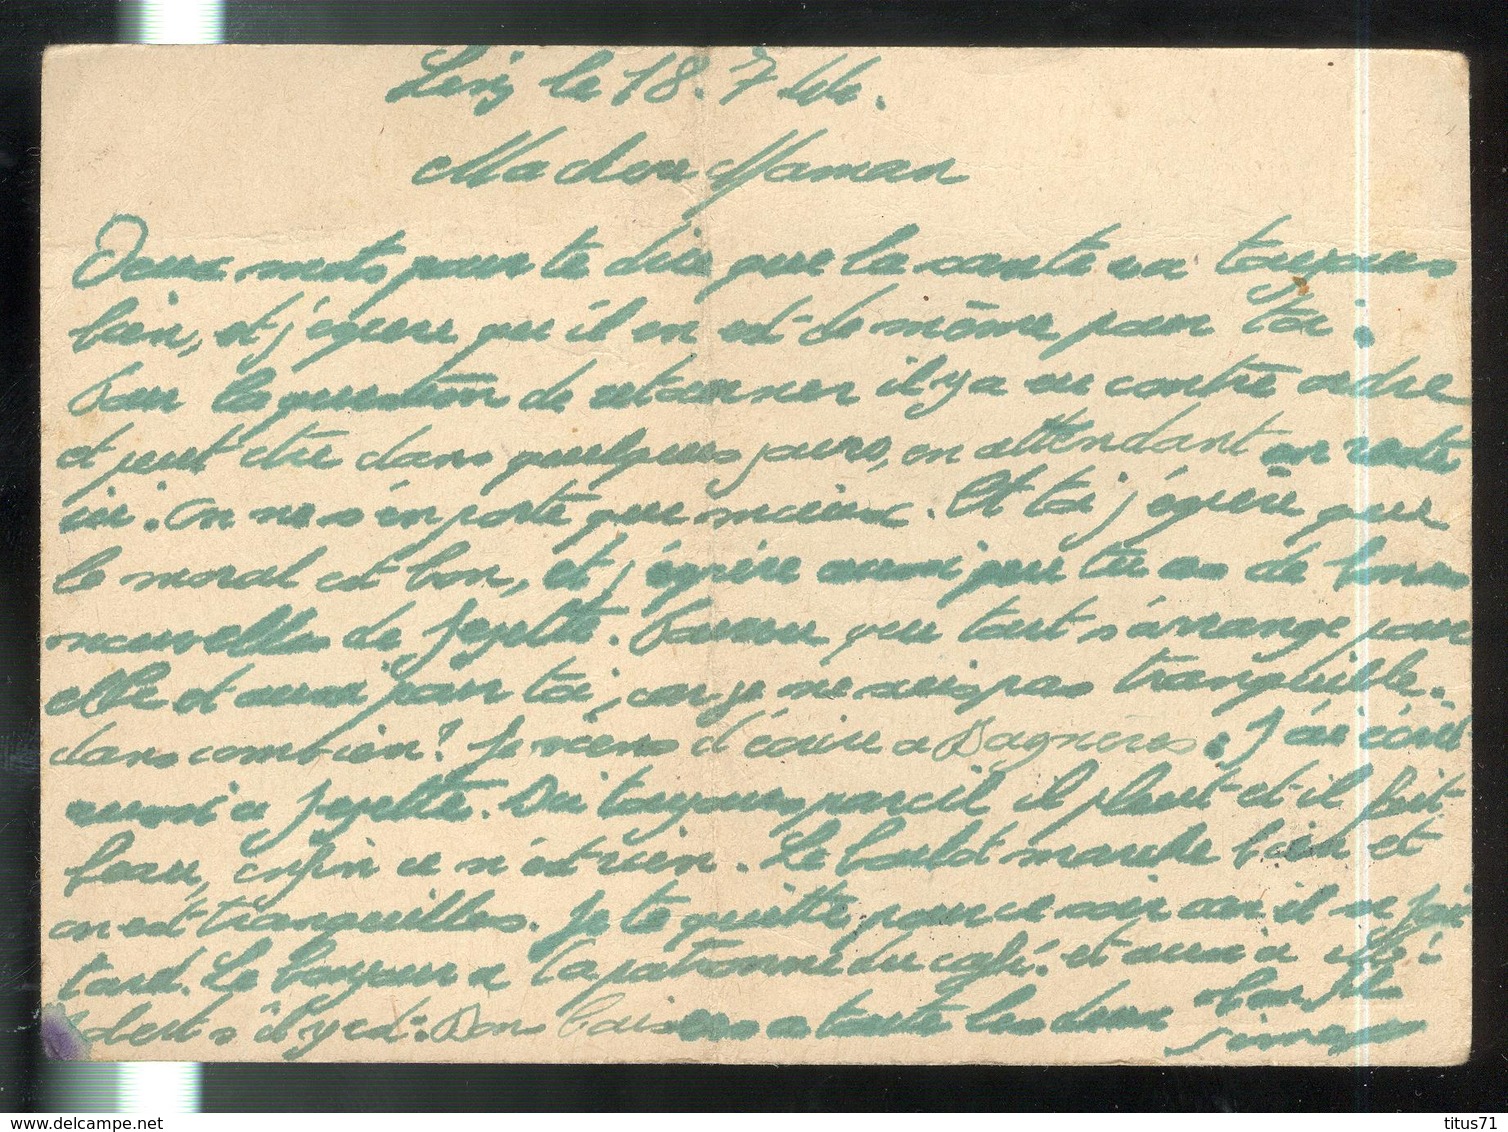 le 18.7.44.
Ma chère Maman
Deux mots pour te dire que la santé va toujours
bien, et j'espère qu'il en est de même pour toi.
Pour la question de retourner il y a eu contre ordre
et peut être dans quelques jours, en attendant on reste
ici. On ne s'en porte que mieux. Et toi j'espère que
le moral est bon, et j'espère aussi que tu as de bonnes
nouvelles de Jojette. Pourvu que tout s'arrange pour
elle et aussi pour toi, car je ne suis pas tranquille.
dans combien? Je viens d'écrire a Bagneres. J'ai écrit
aussi a Jojette. Ici toujours pareil il pleut et il fait
beau, enfin ce n'est rien. Le boulot marche bien et
on est tranquilles. Je te quitte pour ce soir car il se fait
tard. Le bonjour a la patronne du café. et aussi a
s'il y est. Bons baisers a toute les deux ton fils
Simon
www.delcampe.net
titus71